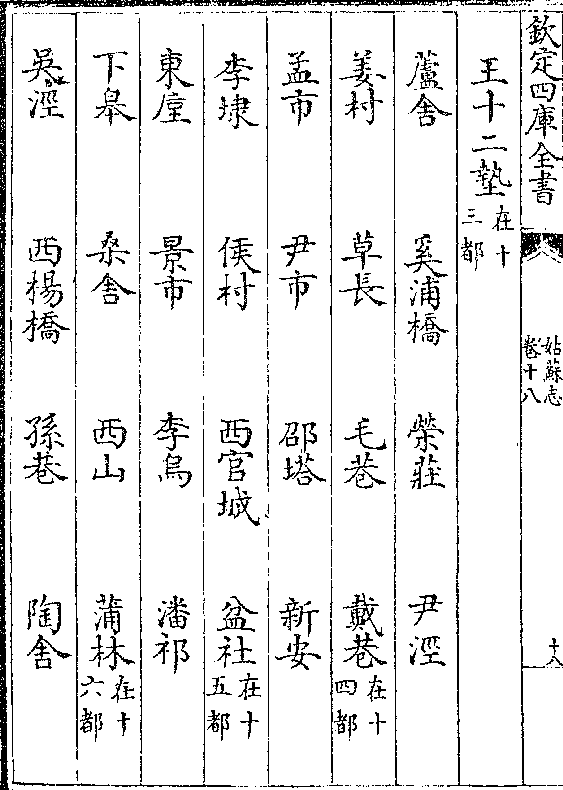 欽定四庫全書
姑蘇志
卷十八
十八
王十二墊在十三都
蘆舍 奚浦橋 榮莊 尹涇
姜村 草長 毛巷 戴巷在十四都
孟市 尹市 邵塔 新安
李埭 侯村 西官城 盆社在十五都
東㕓 景市 李烏 潘祁
下皋 桑舍 西山 蒲林在十六都
吳涇 西楊橋 孫巷 陶舍